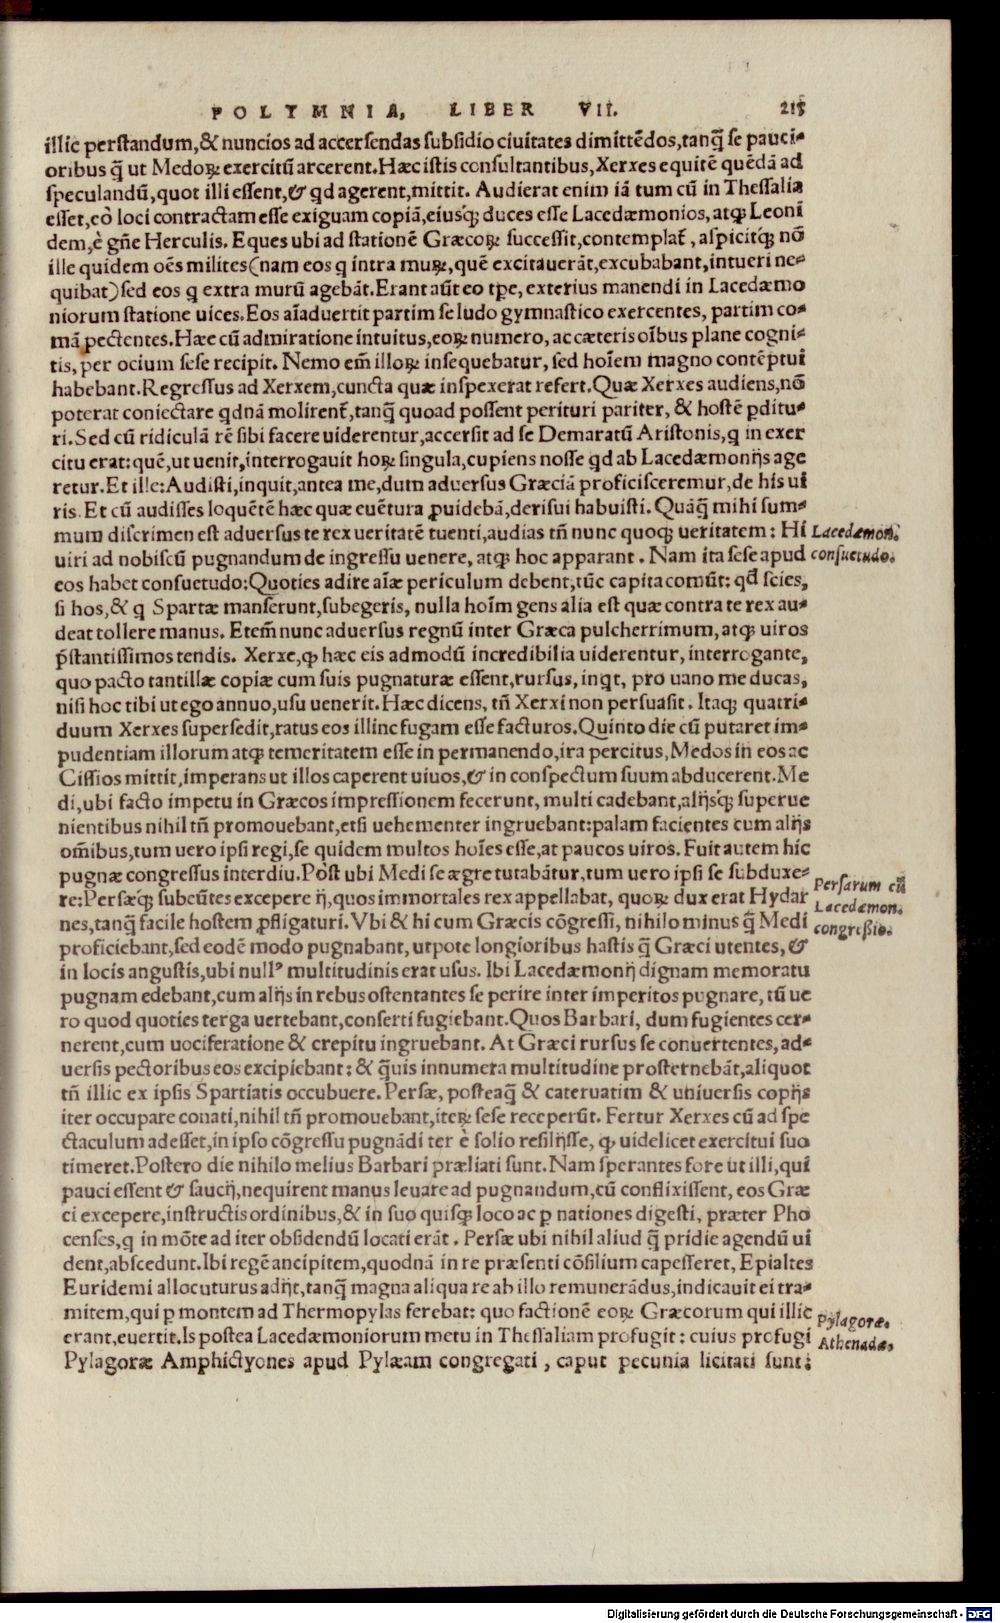 POLYMNIA, LIBER VII. 215
illic perstandum,& nuncios ad accersendas subsidio ciuitates dimittẽdos,tanq̃ se pauci-
oribus q̃ ut Medoꝝ exercitũ arcerent.Hæc istis consultantibus,Xerxes equitẽ quẽdã ad
speculandũ,quot illi essent,& qd agerent,mittit. Audierat enim iã tum cũ in Thessalia
esset,eò loci contractam esse exiguam copiã,eiusq́ꝫ duces esse Lacedæmonios,atqꝫ Leoni
dem,è gñe Herculis. Eques ubi ad stationẽ Græcoꝝ successit,contemplat̃, aspicitq́ꝫ nõ
ille quidem oẽs milites(nam eos q intra murꝝ,quẽ excitauerãt,excubabant,intueri ne-
quibat)sed eos q extra murũ agebãt.Erant aũt eo tp̃e, exterius manendi in Lacedæmo
niorum statione uices. Eos aĩaduertit partim se ludo gymnastico exercentes, partim co-
mã pectentes.Hæc cũ admiratione intuitus,eoꝝ numero, ac cæteris oĩbus plane cogni-
tis, per ocium sese recipit. Nemo em̃ illoꝝ insequebatur, sed hoĩem magno contẽptui
habebant.Regressus ad Xerxem,cuncta quæ inspexerat refert.Quæ Xerxes audiens,nõ
poterat coniectare qdnã molirent̃,tanq̃ quoad possent perituri pariter, & hostẽ ꝑditu-
ri. Sed cũ ridiculã rẽ sibi facere uiderentur,accersit ad se Demaratũ Aristonis,q in exer
citu erat: quẽ,ut uenit,interrogauit hoꝝ singula,cupiens nosse qd ab Lacedæmonijs age
retur.Et ille: Audisti,inquit,antea me,dum aduersus Græciã proficisceremur,de his ui
ris. Et cũ audisses loquẽtẽ hæc quæ euẽtura ꝓuidebã,derisui habuisti. Quãq̃ mihi sum-
mum discrimen est aduersus te rex ueritatẽ tuenti,audias tñ nunc quoqꝫ ueritatem: Hi
uiri ad nobiscũ pugnandum de ingressu uenere, atqꝫ hoc apparant. Nam ita sese apud
eos habet consuetudo: Quoties adire aĩæ periculum debent,tũc capita comũt: qđ scies,
si hos,& q Spartæ manserunt,subegeris, nulla hoĩm gens alia est quæ contra te rex au-
deat tollere manus. Etem̃ nunc aduersus regnũ inter Græca pulcherrimum, atqꝫ uiros
p̃stantissimos tendis. Xerxe,qꝫ hæc eis admodũ incredibilia uiderentur, interrogante,
quo pacto tantillæ copiæ cum suis pugnaturæ essent,rursus, inqt, pro uano me ducas,
nisi hoc tibi ut ego annuo,usu uenerit. Hæc dicens, tñ Xerxi non persuasit. Itaqꝫ quatri-
duum Xerxes supersedit,ratus eos illinc fugam esse facturos.Quinto die cũ putaret im-
pudentiam illorum atqꝫ temeritatem esse in permanendo,ira percitus,Medos in eos ac
Cissios mittit,imperans ut illos caperent uiuos,& in conspectum suum abducerent.Me
di,ubi facto impetu in Græcos impressionem fecerunt, multi cadebant,alijsq́ꝫ superue
nientibus nihil tñ promouebant,etsi uehementer ingruebant:palam facientes cum alijs
om̃ibus,tum uero ipsi regi,se quidem multos hoĩes esse,at paucos uiros. Fuit autem hic
pugnæ congressus interdiu. Pòst ubi Medi se ægre tutabãtur,tum uero ipsi se subduxe-
re: Persæq́ꝫ subeũtes excepere ij,quos immortales rex appellabat, quoꝝ dux erat Hydar
nes,tanq̃ facile hostem ꝓfligaturi. Vbi & hi cum Græcis cõgressi, nihilo minus q̃ Medi
proficiebant,sed eodẽ modo pugnabant, utpote longioribus hastis q̃ Græci utentes, &
in locis angustis,ubi nullꝰ multitudinis erat usus. Ibi Lacedæmonij dignam memoratu
pugnam edebant,cum alijs in rebus ostentantes se perire inter imperitos pugnare, tũ ue
ro quod quoties terga uertebant,conserti fugiebant.Quos Barbari, dum fugientes cer-
nerent,cum uociferatione & crepitu ingruebant. At Græci rursus se conuertentes, ad-
uersis pectoribus eos excipiebant: & q̃uis innumera multitudine prosternebãt,aliquot
tñ illic ex ipsis Spartiatis occubuere. Persæ, posteaq̃ & cateruatim & uniuersis copijs
iter occupare conati,nihil tñ promouebant,iteꝝ sese receperũt. Fertur Xerxes cũ ad spe
ctaculum adesset,in ipso cõgressu pugnãdi ter è solio resilijsse, qꝫ uidelicet exercitui suo
timeret. Postero die nihilo melius Barbari præliati sunt. Nam sperantes fore ut illi,qui
pauci essent & saucij,nequirent manus leuare ad pugnandum,cũ conflixissent, eos Græ
ci excepere,instructis ordinibus,& in suo quisqꝫ loco ac ꝑ nationes digesti, præter Pho
censes,q in mõte ad iter obsidendũ locati erãt. Persæ ubi nihil aliud q̃ pridie agendũ ui
dent,abscedunt.Ibi regẽ ancipitem,quodnã in re præsenti cõsilium capesseret, Epialtes
Euridemi allocuturus adijt,tanq̃ magna aliqua re ab illo remunerãdus,indicauit ei tra-
mitem,qui ꝑ montem ad Thermopylas ferebat: quo factionẽ eoꝝ Græcorum qui illic
erant,euertit.Is postea Lacedæmoniorum metu in Thessaliam profugit: cuius profugi
Pylagoræ Amphictyones apud Pylæam congregati, caput pecunia licitati sunt:
Lacedæmon.
consuetudo.
Persarum cũ
Lacedæmon.
congreßio.
Pylagoræ.
Athenadæ.
Digitalisierung gefördert durch die Deutsche Forschungsgemeinschaft - DFG